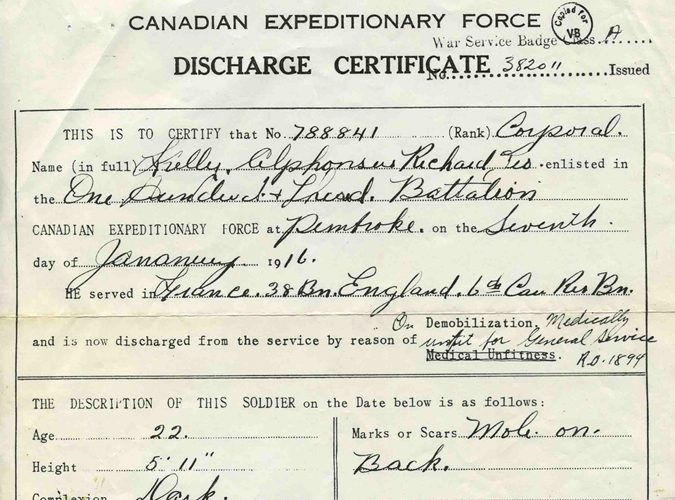 CANADIAN EXPEDITIONARY FORCE
Copied for VB
War Service Badge Class A
DISCHARGE CERTIFICATE
No. 382011 Issued
THIS IS TO CERTIFY that No. 788841 (Rank) Corporal.
Name (in full) Kielly, Alphonsus Richard Leo enlisted in
the One Hundred & Third. Battalion
CANADIAN EXPEDITIONARY FORCE at Pembroke. on the Seventh.
day of Jananuary 1916.
HE served in France. 38 Bn. England. 6th Can Res Bn.
On Demobilization, Medically
and is now discharged from the service by reason of unfit for General Service
Medical Unfitness. R.O. 1894
THE DESCRIPTION OF THIS SOLDIER on the Date below is as follows:
Age 22. Marks or Scars Mole on.
Height 5' 11" Back.
Complexion Dark.